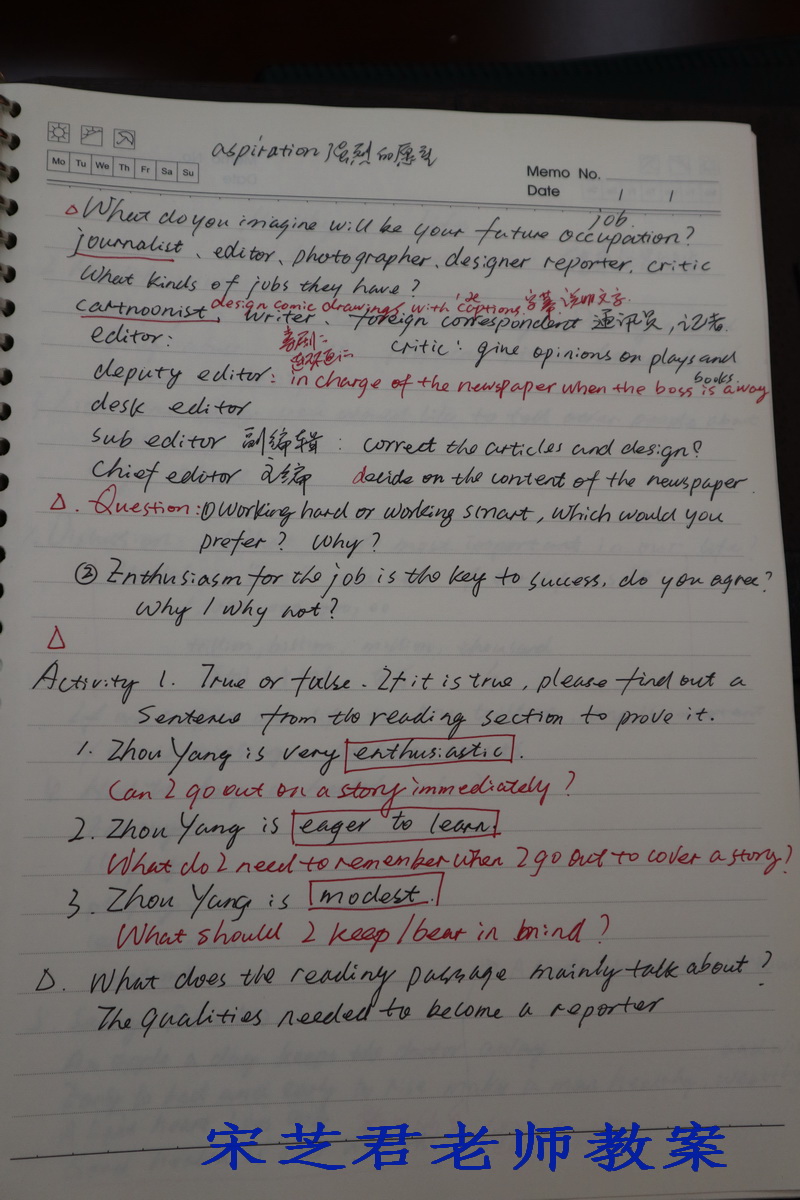 aspiration 强烈的愿望
Mo Tu We Th Fr Sa Su
Memo No.
Date / /
job.
△What do you imagine will be your future occupation?
journalist、editor、photographer、designer reporter, critic
What kinds of jobs they have?
design comic drawings with captions 字幕 说明文字.
cartnoonist, writer、foreign correspondent 通讯员,记者.
editor: critic: give opinions on plays and
books.
deputy editor: in charge of the newspaper when the boss is away
desk editor
sub editor 副编辑: correct the articles and design?
chief editor 主编 decide on the content of the newspaper
△. Question: ①Working hard or working smart, which would you
prefer? Why?
② Enthusiasm for the job is the key to success, do you agree?
Why / Why not?
△
Activity 1. True or false. If it is true, please find out a
sentence from the reading section to prove it.
1. Zhou Yang is very enthusiastic.
Can I go out on a story immediately?
2. Zhou Yang is eager to learn
What do I need to remember when I go out to cover a story?
3. Zhou Yang is modest.
What should I keep/bear in mind?
△. What does the reading passage mainly talk about?
The qualities needed to become a reporter
宋芝君老师教案